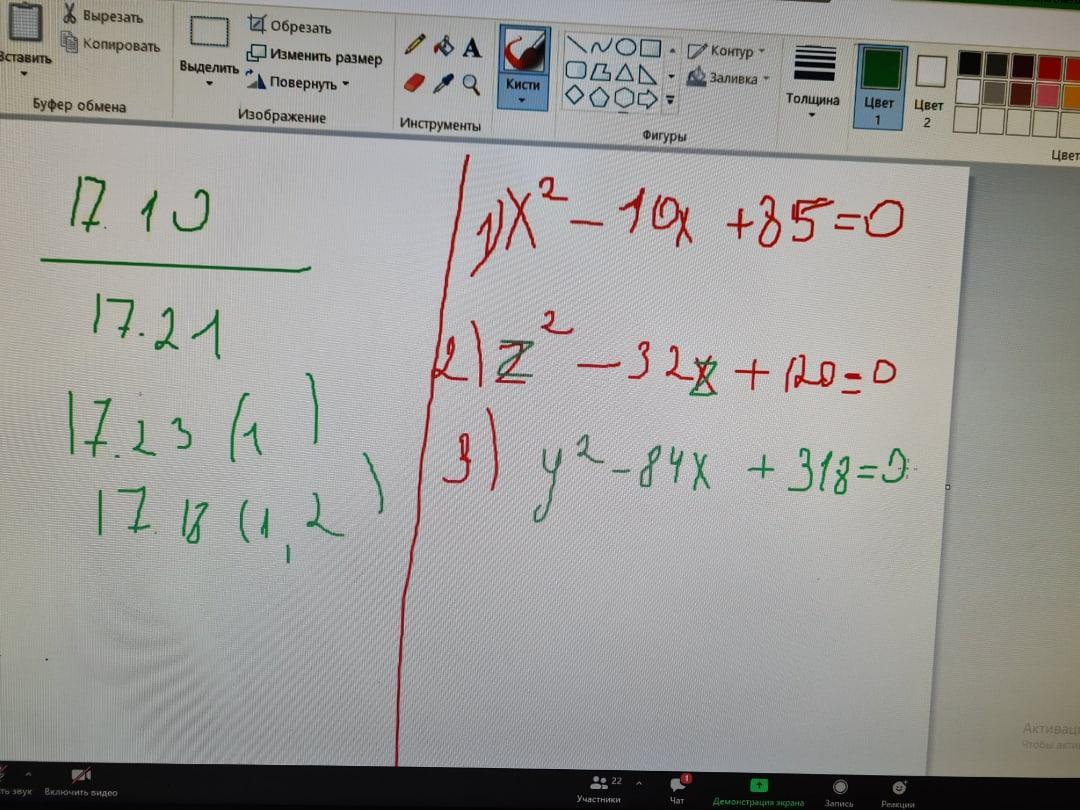 Вставить
Вырезать
Копировать
Буфер обмена
Выделить
Обрезать
Изменить размер
Повернуть
Изображение
Инструменты
Кисти
Контур
Заливка
Фигуры
Толщина
Цвет 1
Цвет 2
Цвет
17.10
17.21
17.23 (1)
17.18 (1,2)
1) x² - 10x + 85 = 0
2) z² - 32z + 120 = 0
3) y² - 84x + 318 = 0
Активац
Чтобы акти
ть звук
Включить видео
22
Участники
1
Чат
Демонстрация экрана
Запись
Реакции